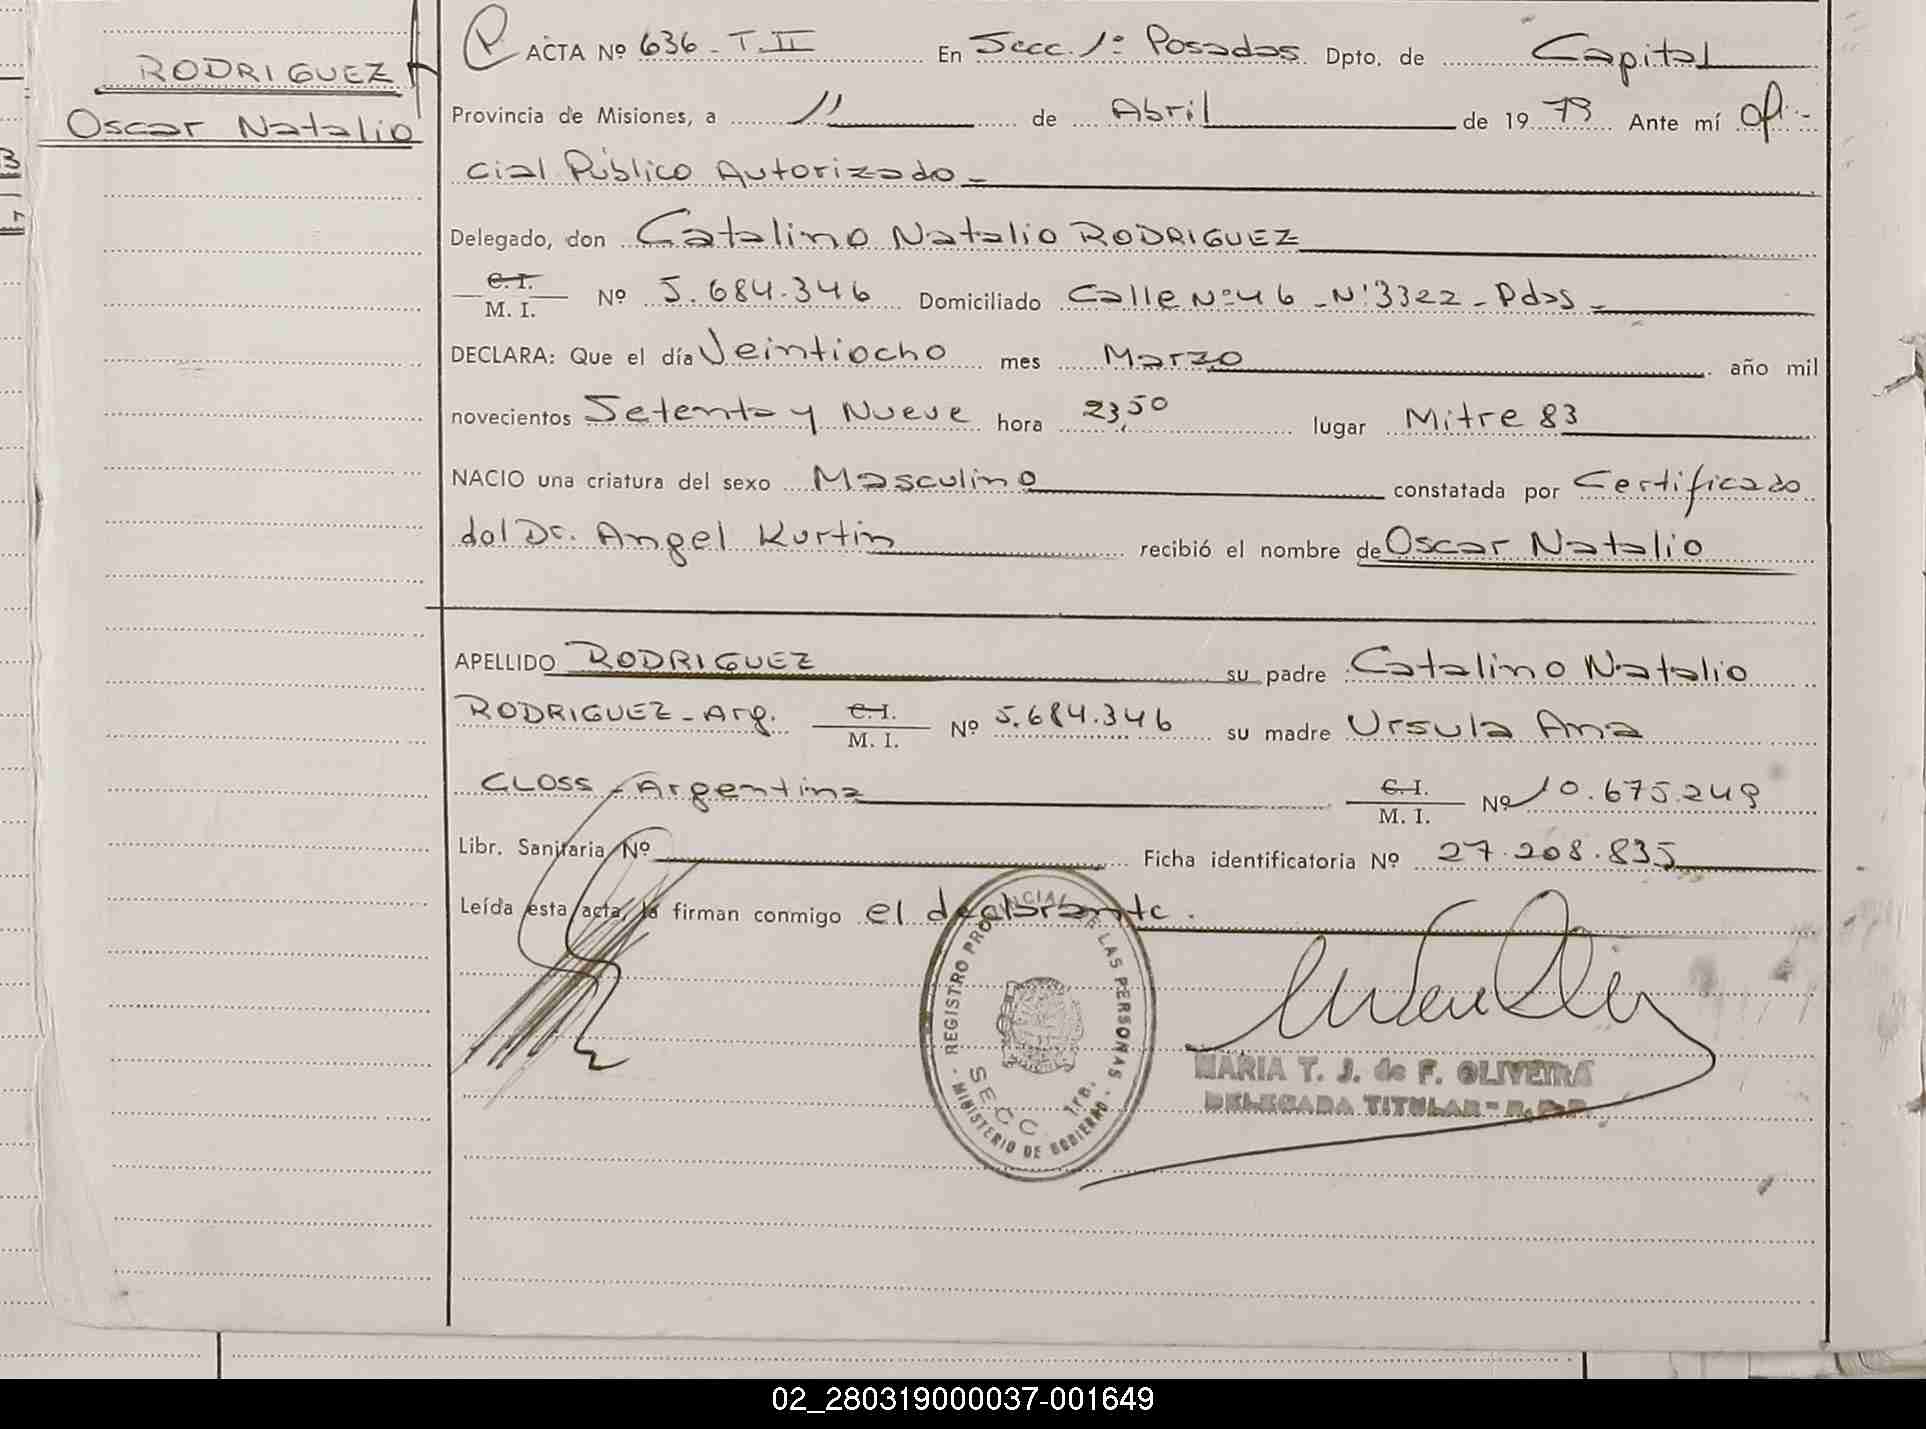 RODRIGUEZ
Oscar Natalio
ACTA Nº 636 - T. II En Secc. 1º Posadas. Dpto. de Capital
Provincia de Misiones, a 11 de Abril de 1979 Ante mí Ofi-
cial Público Autorizado -
Delegado, don Catalino Natalio RODRIGUEZ
C. I.
M. I. Nº 5.684.346 Domiciliado Calle Nº 46 - Nº 3322 - Pdas -
DECLARA: Que el día Veintiocho mes Marzo año mil
novecientos Setenta y Nueve hora 23,50 lugar Mitre 83
NACIO una criatura del sexo Masculino constatada por Certificado
del Dr. Angel Kurtin recibió el nombre de Oscar Natalio
APELLIDO RODRIGUEZ su padre Catalino Natalio
RODRIGUEZ - Arg. C. I.
M. I. Nº 5.684.346 su madre Ursula Ana
CLOSS - Argentina C. I.
M. I. Nº 10.675.249
Libr. Sanitaria Nº Ficha identificatoria Nº 27.208.835
Leída esta acta, la firman conmigo el declarante.
REGISTRO PROVINCIAL DE LAS PERSONAS
SECC 1ra.
MINISTERIO DE GOBIERNO
MARIA T. J. de F. OLIVEIRA
DELEGADA TITULAR - R. P. P.
02_280319000037-001649